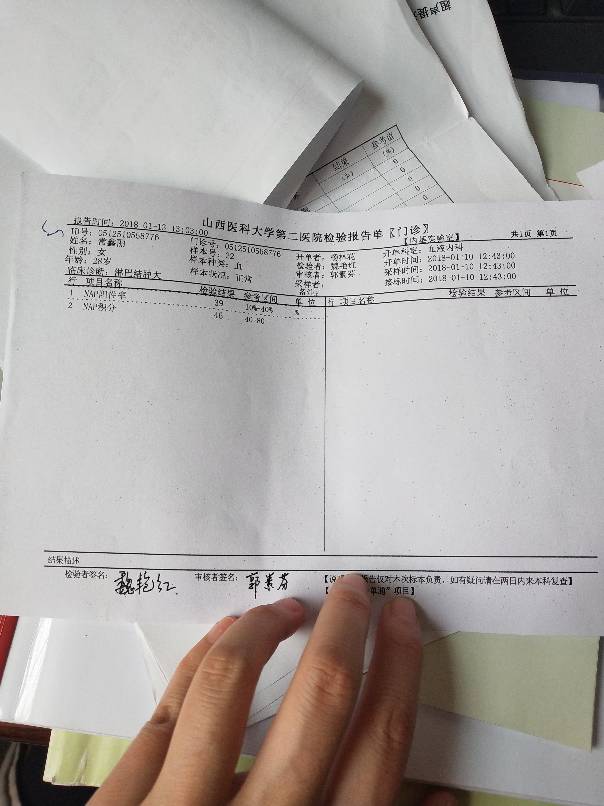 超声报
结果
参考值
(%)
(%)
0
0
0
0
山西医科大学第二医院检验报告单【门诊】
报告时间: 2018-01-12 13:03:00
【内基实验室】
共1页 第1页
ID号: 0512510568776
门诊号: 0512510568776
开单者: 杨林花
开单科室: 血液内科
样本号: 22
检验者: 魏艳红
开单时间: 2018-01-10 12:42:00
性别: 女
样本种类: 血
审核者: 郭素芬
采样时间: 2018-01-10 12:43:00
年龄: 28岁
样本状态: 正常
采样者:
接标时间: 2018-01-10 12:43:00
临床诊断: 淋巴结肿大
备注:
行 项目名称 检验结果 参考区间 单 位 行 项目名称 检验结果 参考区间 单 位
1 NAP阳性率 39 10%-40% %
2 NAP积分 46 40-80
结果描述
检验者签名: 魏艳红 审核者签名: 郭素芬 报告仅对本次标本负责, 如有疑问请在两日内来本科复查】
单通"项目】